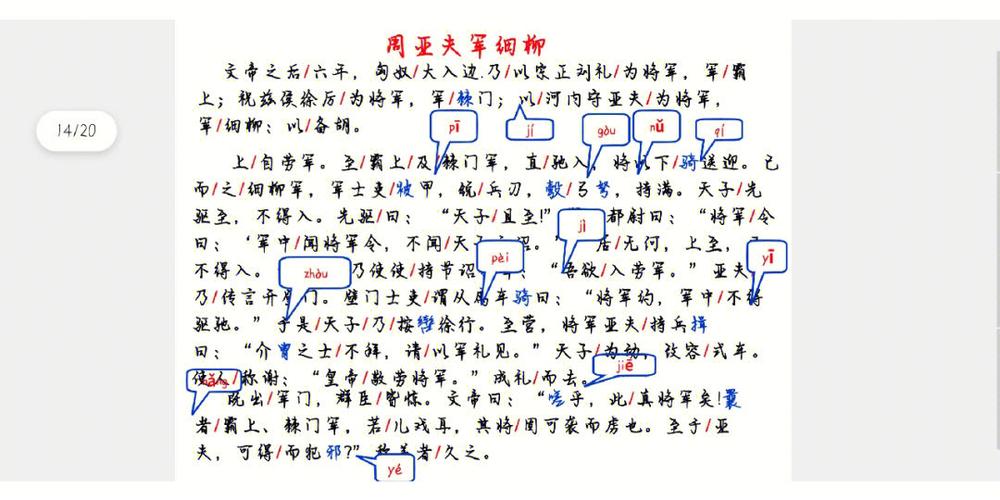 周亚夫军细柳
文帝之后/六年，匈奴/大入边.乃/以宗正刘礼/为将军，军/霸
上；祝兹侯徐厉/为将军，军/棘门；以/河内守亚夫/为将军，
军/细柳：以/备胡。
pī
jí
gòu
nǔ
qí
14/20
上/自劳军。至/霸上/及/棘门军，直/驰入，将以下/骑送迎。已
而/之/细柳军，军士吏/被甲，锐/兵刃，彀/弓弩，持满。天子/先
驱至，不得入。先驱/曰：“天子/且至!” 都尉曰：“将军/令
jì
曰：‘军中/闻将军令，不闻/天 诏。 居/无何，上至，
pèi
yī
不得入。 乃使使/持节诏 ：“吾欲/入劳军。”亚夫
zhòu
乃/传言开 门。壁门士吏/谓从属车骑曰：“将军约，军中/不得
驱驰。”于是/天子/乃/按辔徐行。至营，将军亚夫/持兵揖
曰：“介胄之士/不拜，请/以军礼见。”天子/为动，改容/式车。
jiē
使人/称谢：“皇帝/敬劳将军。”成礼/而去。
nǎng
既出/军门，群臣/皆惊。文帝曰：“嗟乎，此/真将军矣!曩
者/霸上、棘门军，若/儿戏耳，其将/固可袭而虏也。至于/亚
夫，可得/而犯邪?”称善者/久之。
yé